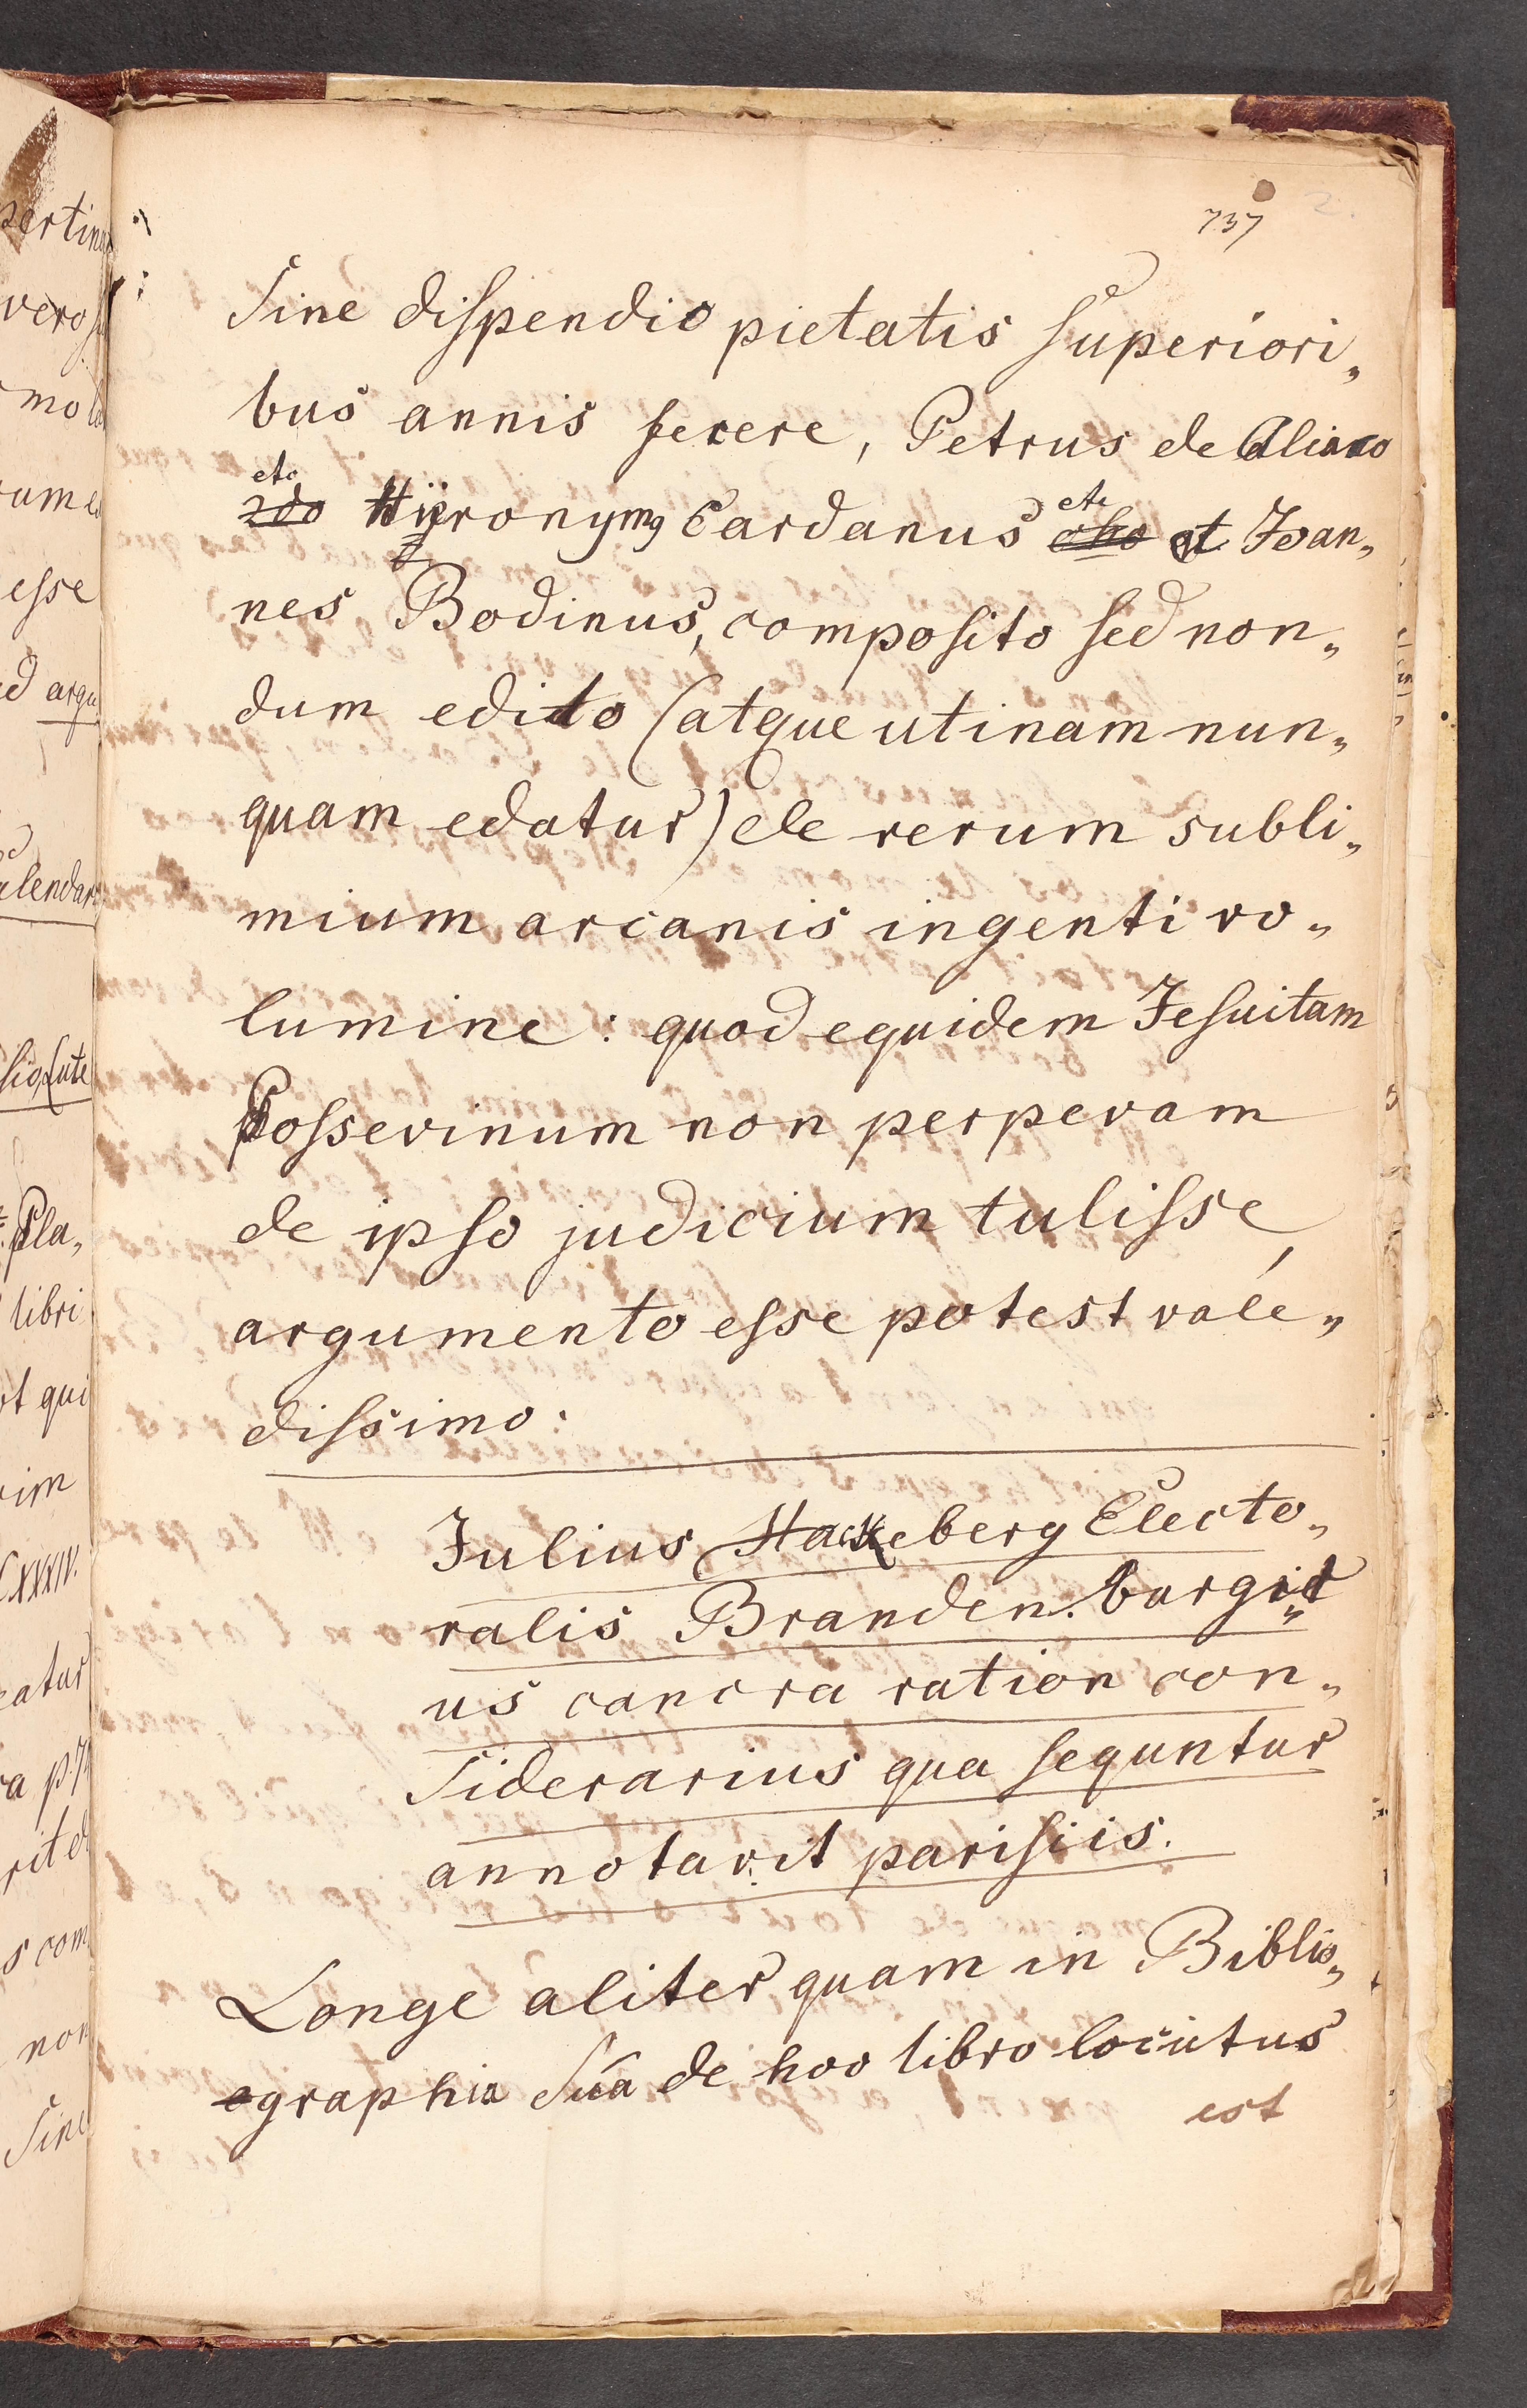 737 2.
Sine dispendio pietatis superiori„
bus annis fecere, Petrus de Aliaco
etc
Hyronymg Cardanus etc et Joan„
nes Bodinus, composito sed non„
dum edito (atque utinam nun„
quam edatur) de rerum subli„
mium arcanis ingenti vo„
lumine: quod equidem Jesuitam
Possevinum non perperam
de ipso judicium tulisse,
argumento esse potest vale„
dissimo:
Julius Hackeberg Electo„
ralis Branden. burgic„
us cancra ration con„
siderarius qua sequntur
annotavit parisiis.
Longe aliter quam in Biblio„
graphia Sua de hoc libro locutus
est
pertin
vero
mo
esse
argu
alendar
Lute
Pla„
libri
qui
im
CXXXIV.
eatur
a p. 7
s com
non
Sine